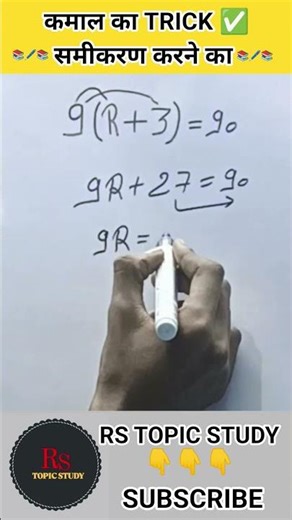 कमाल का TRICK ✅
समीकरण करने का
9(R+3)=90
9R+27=90
9R=
Rs
TOPIC STUDY
RS TOPIC STUDY
👇👇👇
SUBSCRIBE